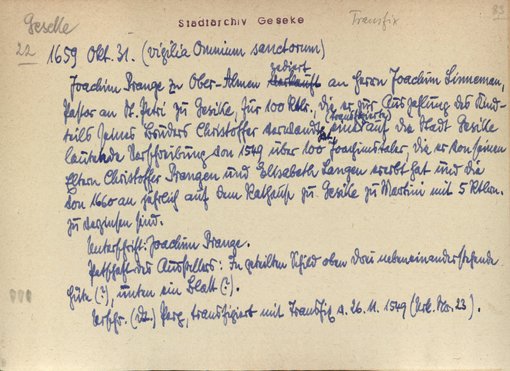 Geseke
Stadtarchiv Geseke
Transfix
83
22
1659 Okt. 31. (vigilia Omnium sanctorum)
Joachim Prange zu Ober-Almen verkauft zediert an Herrn Joachim Linneman,
Pastor an St. Petri zu Geseke, für 100 Rtlr., die er zur Auszahlung des Kind-
teils seines Bruders Christoffer verwandt hat, eine (transfixierte) auf die Stadt Geseke
lautende Verschreibung von 1549 über 100 Joachimstaler, die er von seinen
Eltern Christoffer Prangen und Elisabeth Langen ererbt hat und die
von 1660 an jährlich auf dem Rathause zu Geseke zu Martini mit 5 Rtlrn.
zu verzinsen sind.
Unterschrift: Joachim Prange.
Petschaft des Ausstellers: In geteilten Schild oben drei nebeneinanderstehende
Hüte (?), unten ein Blatt (?).
Urschr. (Dt.) Perg., transfigiert mit Transfix a. 26. 11. 1549 (Urk. Nr. 23).